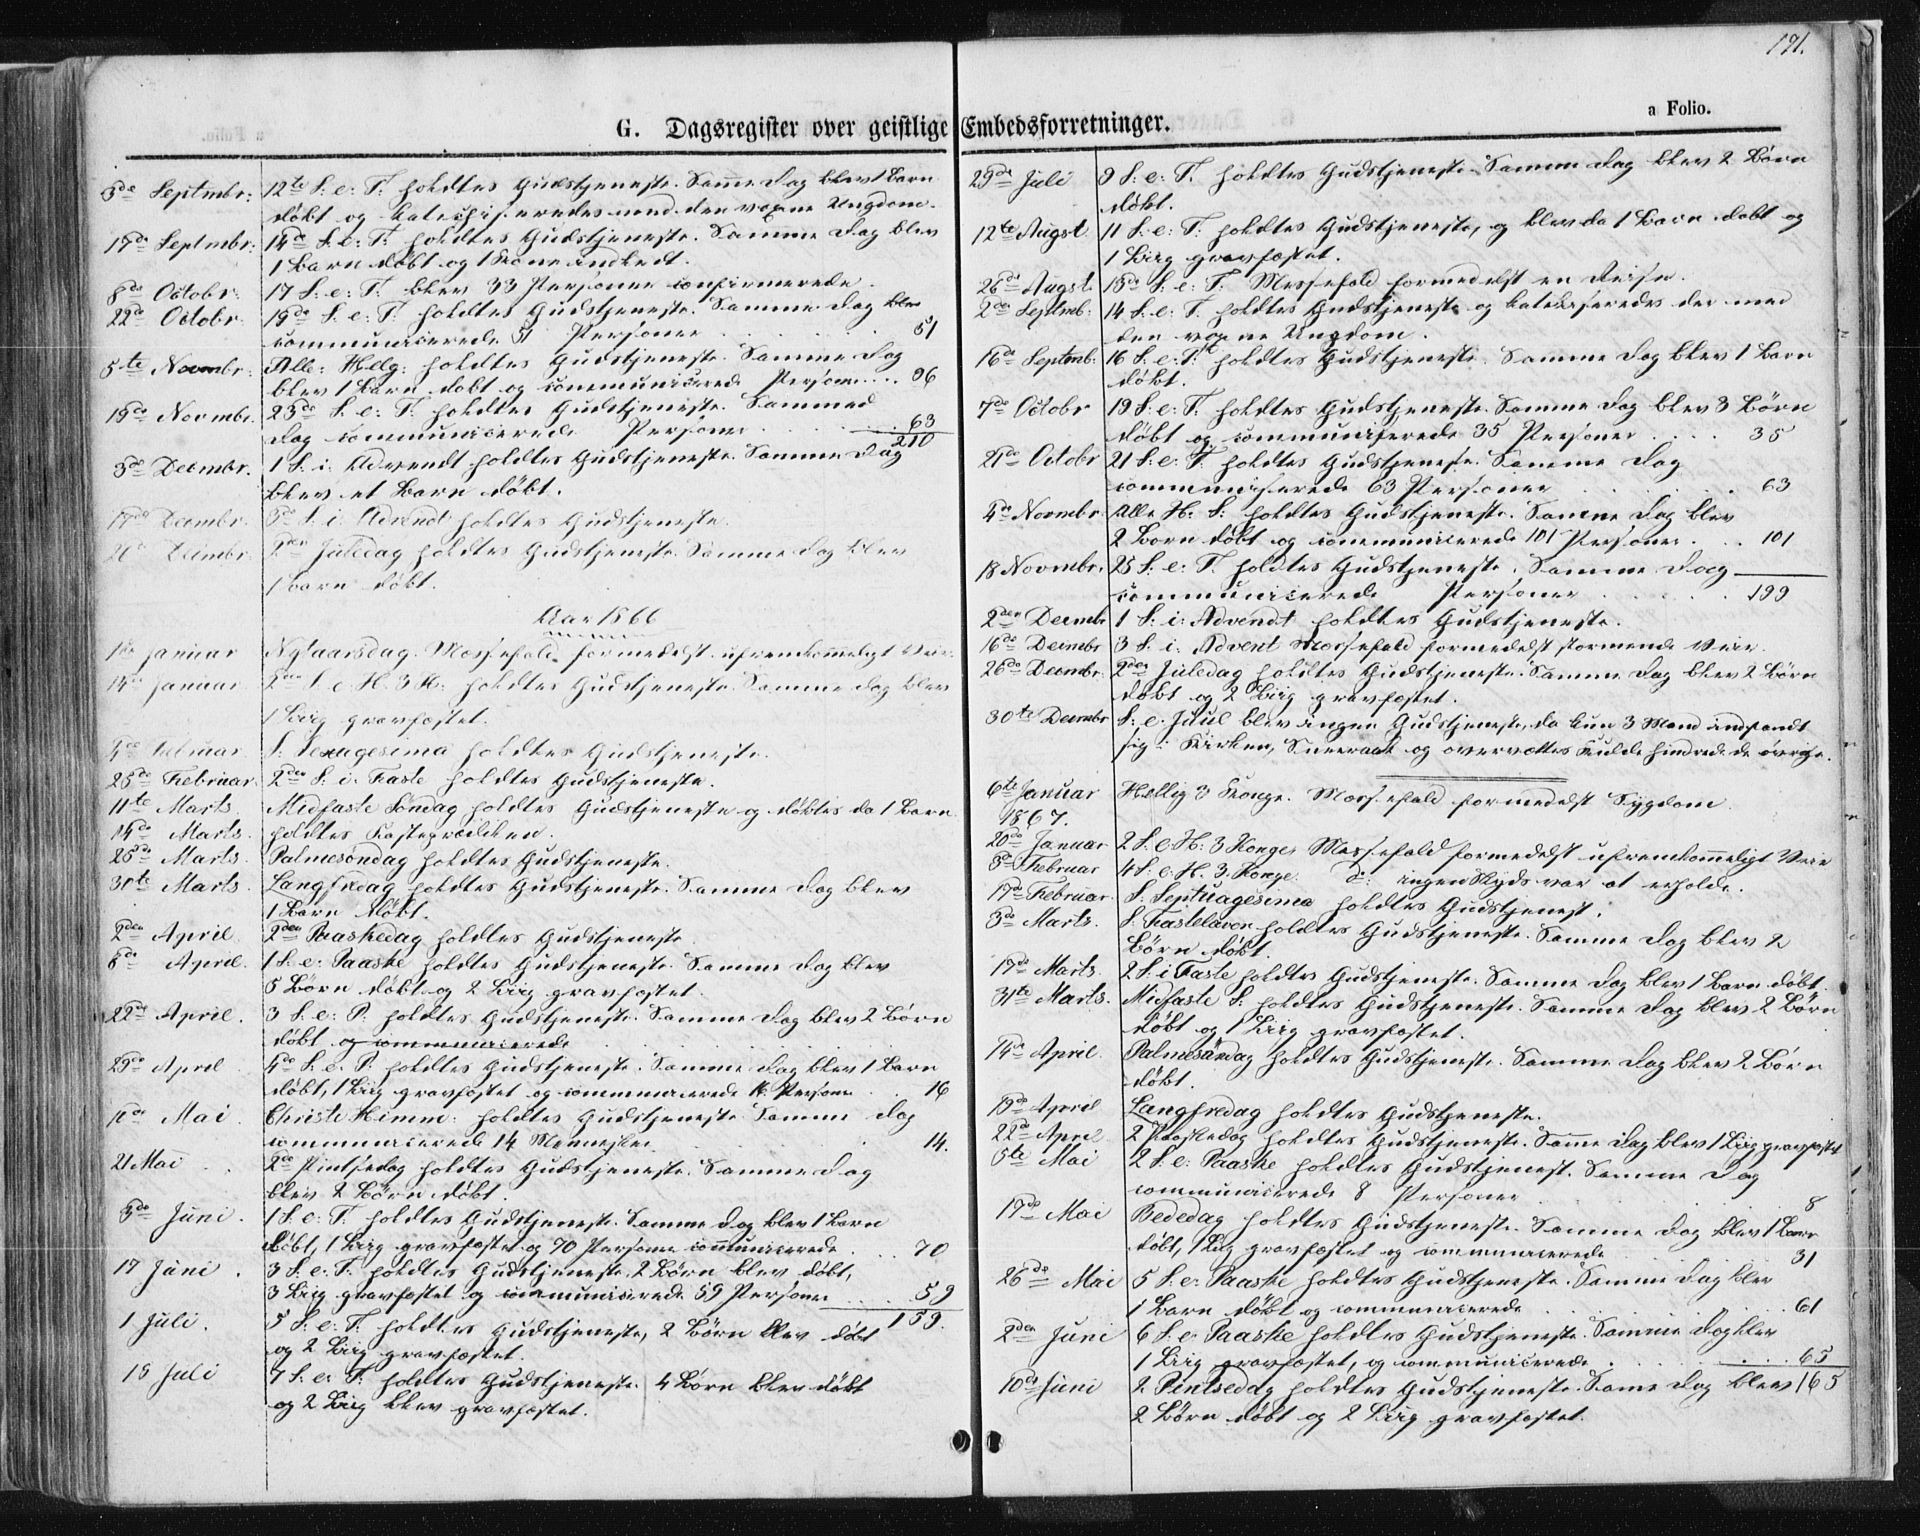 191.
a Folio.
G. Dagsregister over geistlige Embedsforretninger.
3de Septmbr: 12te S: e: T: holdtes Gudstjeneste. Samme Dag blev 1 Barn
døbt og katechiseredes med den voxne Ungdom.
17de Septmbr: 14de S: e: T: holdtes Gudstjeneste. Samme Dag blev
1 Barn døbt og 1 Kone indledt.
8de Octobr: 17 S: e: T: blev 33 Personer confirmerede.
22de Octobr 19de S: e: T: holdtes Gudstjeneste. Samme Dag blev
communicerede 51 Personer 51
5te Novmbr: Alle: Helg: holdtes Gudstjeneste. Samme Dag
blev 1 Barn døbt og communicerede Personer 96
19de Novmbr. 23de S: e: T: holdtes Gudstjeneste. Samme
Dag communicerede Personer 63
210
3de Decmbr. 1 S: i: Advendt holdtes Gudstjeneste. Samme Dag
blev et Barn døbt.
17de Decmbr. 3de S: i Advendt holdtes Gudstjeneste.
26de Decmbr. 2den Juledag holdtes Gudstjeneste. Samme Dag blev
1 Barn døbt.
Aar 1866
1ste Januar Nytaarsdag. Messefald formedelst ufremkommeligt Veir.
14de Januar 2den S. e H. 3 K: holdtes Gudstjeneste. Samme Dag blev
1 Liig gravfæstet.
4de Februar S. Sexagesima holdtes Gudstjeneste.
25de Februar. 2den S: i: Faste holdtes Gudstjeneste.
11te Marts Midfaste Søndag holdtes Gudstjeneste og døbtes da 1 Barn.
14de Marts. holdtes Fasteprædiken.
25de Marts. Palmesøndag holdtes Gudstjeneste.
30te Marts. Langfredag holdtes Gudstjeneste. Samme Dag blev
1 Barn døbt.
2den April. 2den Paaskedag holdtes Gudstjeneste.
8de April. 1 S: e: Paaske holdtes Gudstjeneste. Samme Dag blev
5 Børn døbt og 2 Liig gravfæstet.
22de April. 3 S: e: P. holdtes Gudstjeneste. Samme Dag blev 2 Børn
døbt og communicerede
29de April 4de S. e. P. holdtes Gudstjeneste. Samme Dag blev 1 Barn
døbt, 1 Liig gravfæstet og communicerede 16 Personer 16
10de Mai. Christi Himm: holdtes Gudstjeneste Samme Dag
communicerede 14 Mennesker 14.
21 Mai 2de Pintsedag holdtes Gudstjeneste. Samme Dag
blev 2 Børn døbt.
3de Juni. 1 S: e: T: holdtes Gudstjeneste. Samme Dag blev 1 Barn
døbt, 1 Liig gravfæstet og 70 Personer communicerede 70
17 Juni. 3 S: e: T: holdtes Gudstjeneste, 2 Børn blev døbt,
3 Liig gravfæstet og communicerede 59 Personer 59
159.
1 Juli. 5 S: e: T: holdtes Gudstjeneste, 2 Børn blev døbt
og 2 Liig gravfæstet.
15 Juli 7 S: e: T: holdtes Gudstjeneste. 4 Børn blev døbt
og 2 Liig blev gravfæstet.
29de Juli 9 S: e: T. holdtes Gudstjeneste. Samme Dag blev 2 Børn
døbt.
12te Augst. 11 S: e: T: holdtes Gudstjeneste, og blev da 1 Barn døbt og
1 Liig gravfæstet.
26de Augst 13de S: e: T. Messefald formedelst en Reise.
2de Septmb. 14 S: e: T. holdtes Gudstjeneste og katekiseredes der med
den voxne Ungdom.
16de Septmb: 16 S: e: T: holdtes Gudstjeneste. Samme Dag blev 1 Barn
døbt.
7de Octobr 19 S: e: T. holdtes Gudstjeneste. Samme Dag blev 3 Børn
døbt og communicerede 35 Personer 35
21de Octobr 21 S: e: T. holdtes Gudstjeneste. Samme Dag
communicerede 63 Personer 63
4de Novmbr. Alle H. S: holdtes Gudstjeneste. Samme Dag blev
2 Børn døbt og communicerede 101 Personer 101
18 Novmbr. 25 S: e: T. holdtes Gudstjeneste. Samme Dag
communicerede Personer 199
2den Decmbr 1 S: i: Advendt holdtes Gudstjeneste.
16de Decmbr 3 S: i: Advent Messefald formedelst stormende Veir.
26de Decmbr: 2den Juledag holdtes Gudstjeneste. Samme Dag blev 2 Børn
døbt og 2 Liig gravfæstet.
30te Decmbr S: e. Juul blev ingen Gudstjeneste, da kun 3 Mand indfandt
sig i Kirken, og overvættes Kulde hindrede de øvrige.
6te Januar Hellig 3 Konge. Messefald formedelst Sygdom.
1867.
20de Januar 2 S: e H: 3 Konger Messefald formedelst ufremkommeligt Veir
3de Februar 4 S: e: H. 3. Konge: do: ingen Skyds var at erholde.
17de Februar. S. Septuagesima holdtes Gudstjenest.
3de Marts. S. Fastelavn holdtes Gudstjeneste. Samme Dag blev 2
Børn døbt.
17de Marts. 2 S: i Faste holdtes Gudstjeneste. Samme Dag blev 1 Barn døbt.
31te Marts. Midfaste S: holdtes Gudstjeneste. Samme Dag blev 2 Børn
døbt og 1 Liig gravfæstet.
14de April. Palmesøndag holdtes Gudstjeneste. Samme Dag blev 2 Børn
døbt.
19de April Langfredag holdtes Gudstjeneste.
22de April 2 Paaskedag holdtes Gudstjeneste. Samme Dag blev 1 Liig gravfæstet
5te Mai 2 S. e: Paaske holdtes Gudstjenest. Samme Dag
communicerede 8 Personer 8
17de Mai Bededag holdtes Gudstjeneste. Samme Dag blev 1 Barn
døbt, 1 Liig gravfæstet og communicerede 31
26de Mai 5 S: e: Paaske holdtes Gudstjeneste. Samme Dag blev
1 Barn døbt og communicerede 61
2den Juni 6 S: e: Paaske holdtes Gudstjeneste. Samme Dag blev
1 Liig gravfæstet, og communicerede 65
10de Juni 2 Pintsedag holdtes Gudstjeneste. Samme Dag blev 165
2 Børn døbt og 2 Liig gravfæstet.